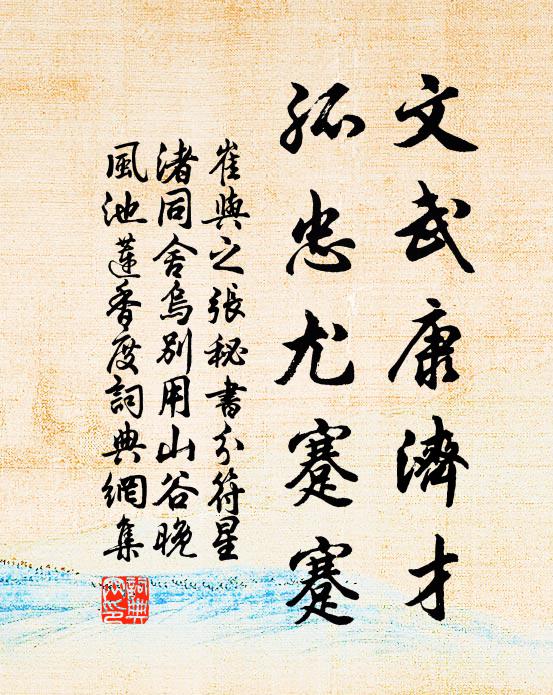 文武康濟才
孤忠尤蹇蹇
崔與之張秘書分符星
渚同舍烏別用山谷晚
風池蓮香度詞典網集